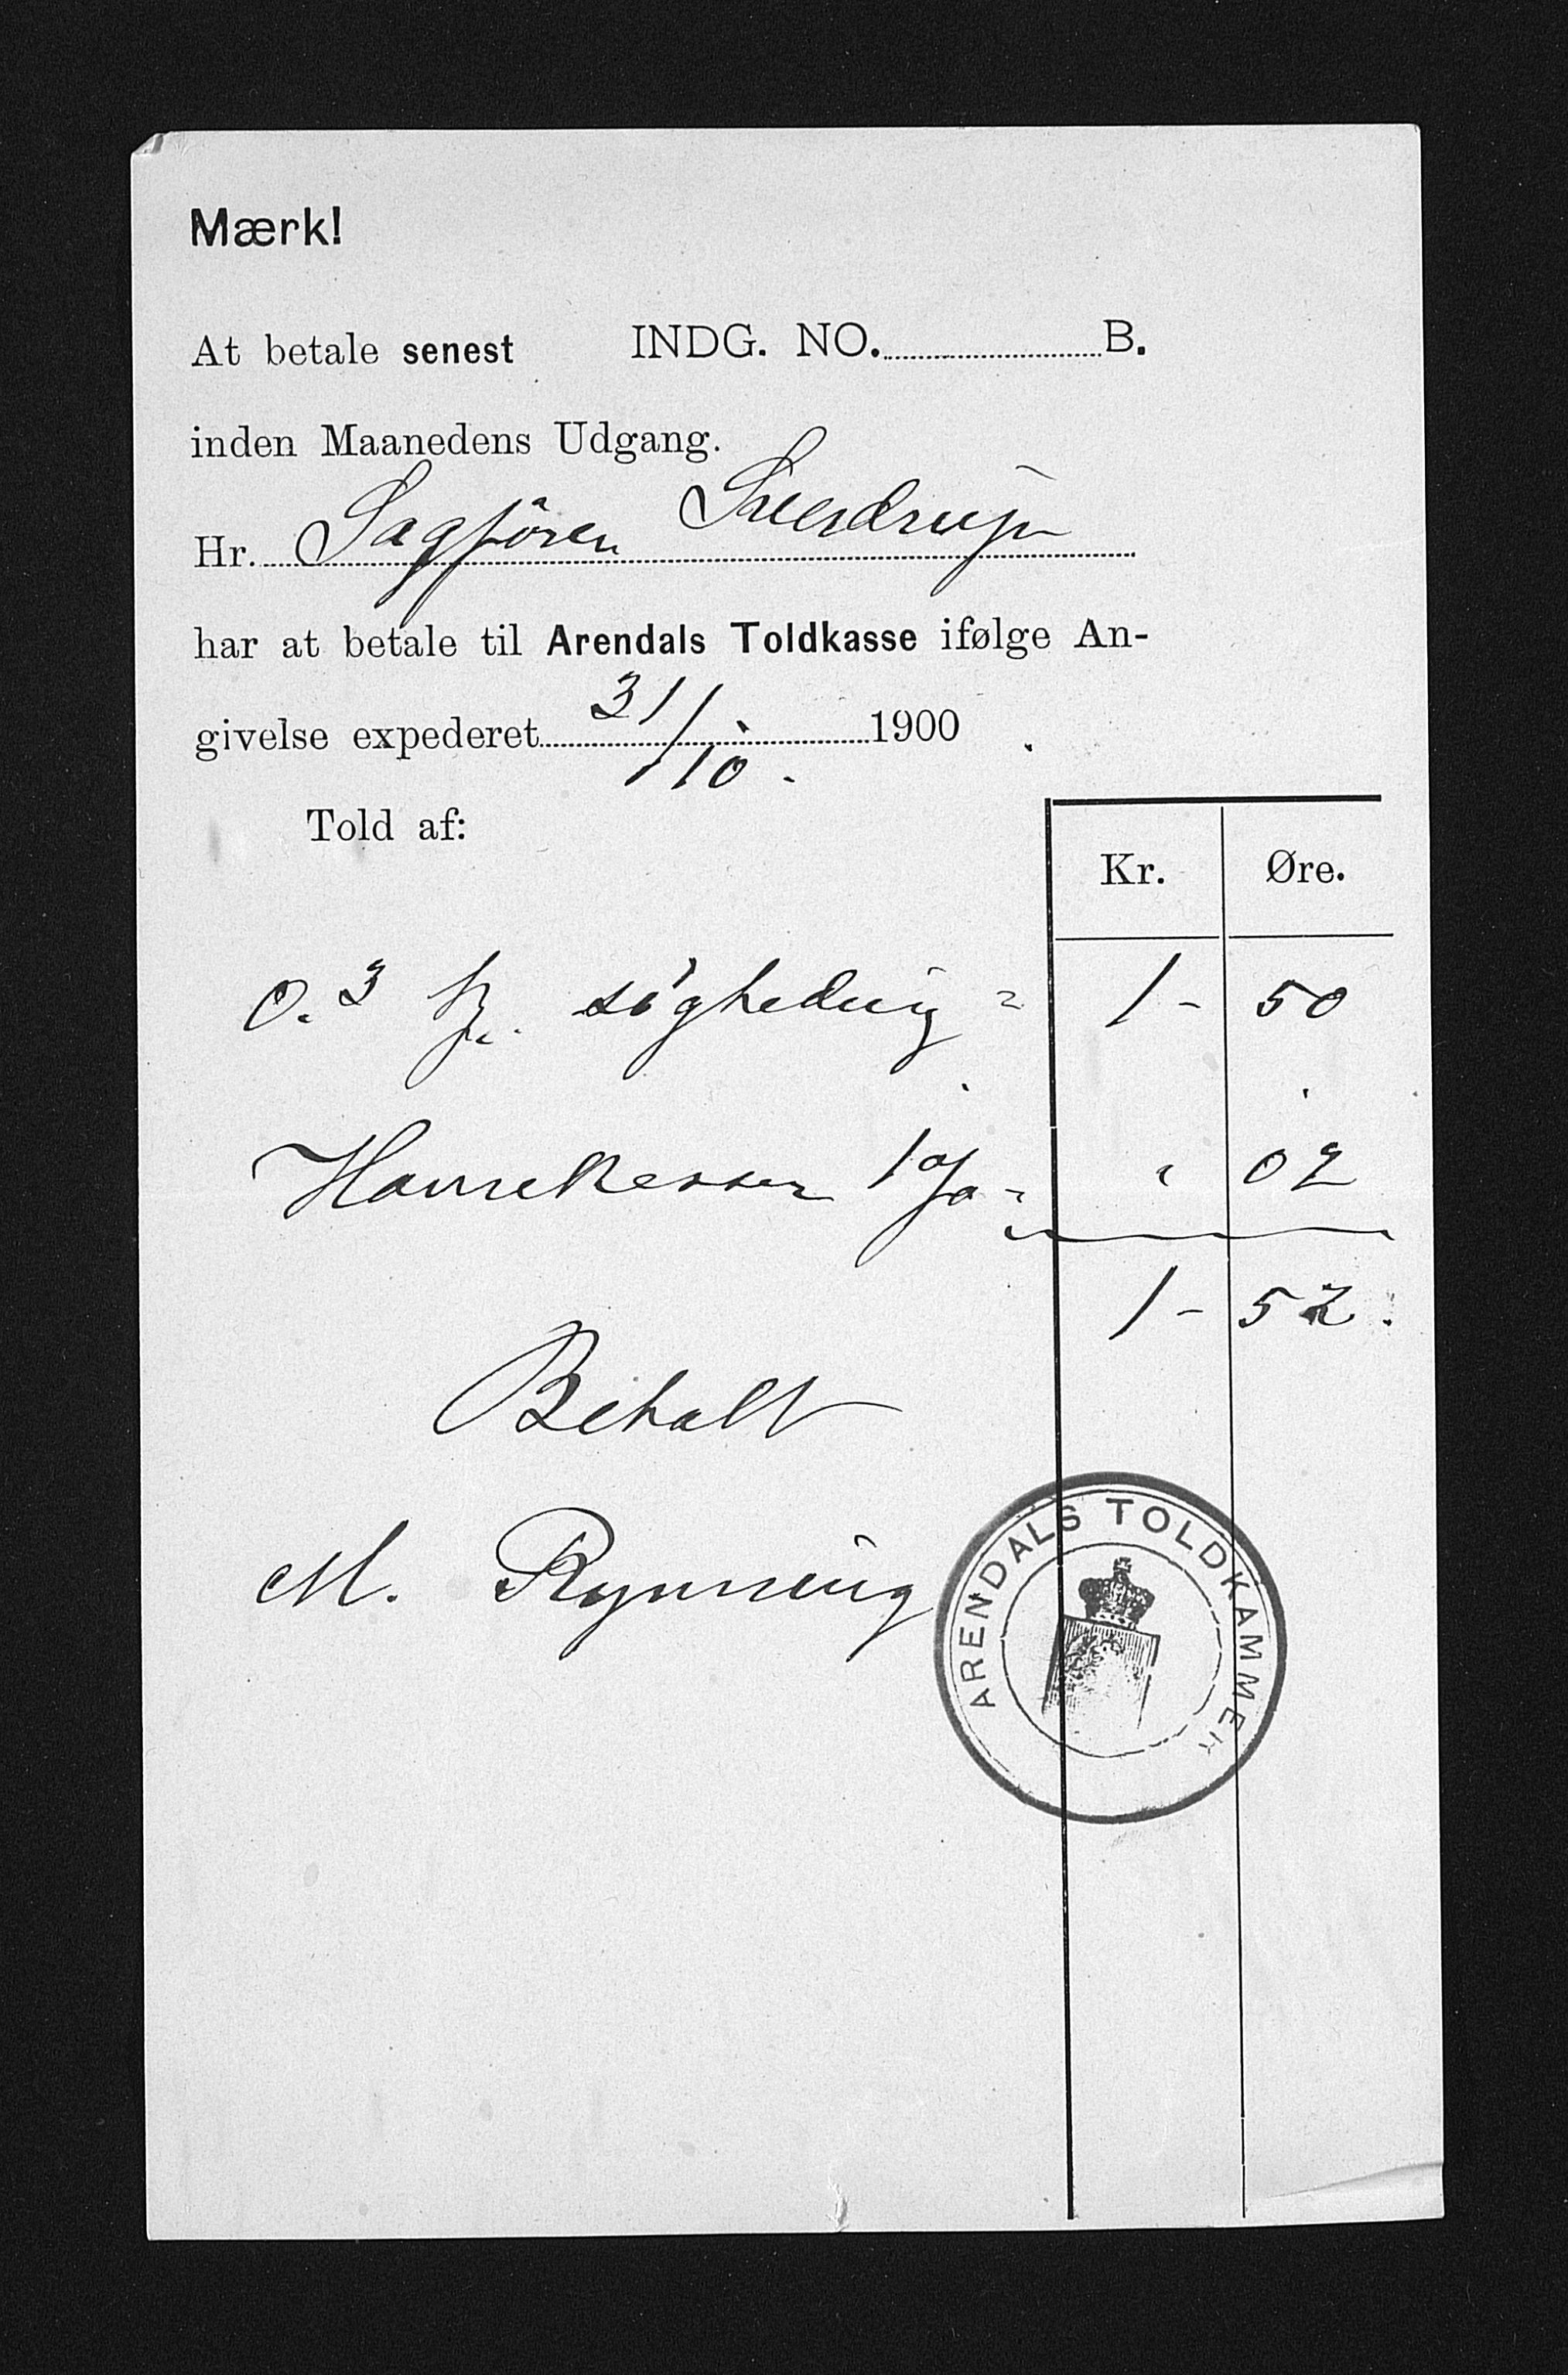 Mærk!
At betale senest INDG. NO. B.
inden Maanedens Udgang.
Hr. Sagförer Sverdrup
har at betale til Arendals Toldkasse ifølge An-
givelse expederet 31/10. 1900
Told af:
Kr. Øre.
0.3 = 1 - 50
Havnekassen 1 % = " 02
1 - 52.
Betalt
M. Rynning
ARENDALS TOLDKAMMER